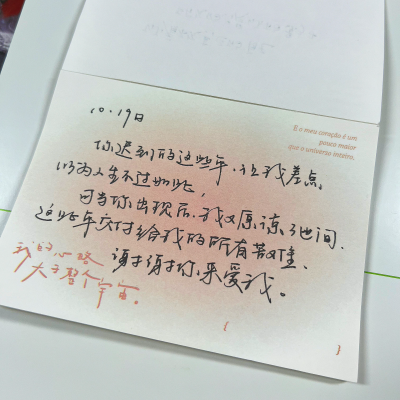 10.19日
E o meu coração é um
pouco maior
que o universo inteiro.
你迟到的这些年,让我差点
以为人生不过如此,
可当你出现后,我又原谅了世间
这些年交付给我的所有苦难
谢谢你,来爱我。
我的心略
大于整个宇宙。
{ }